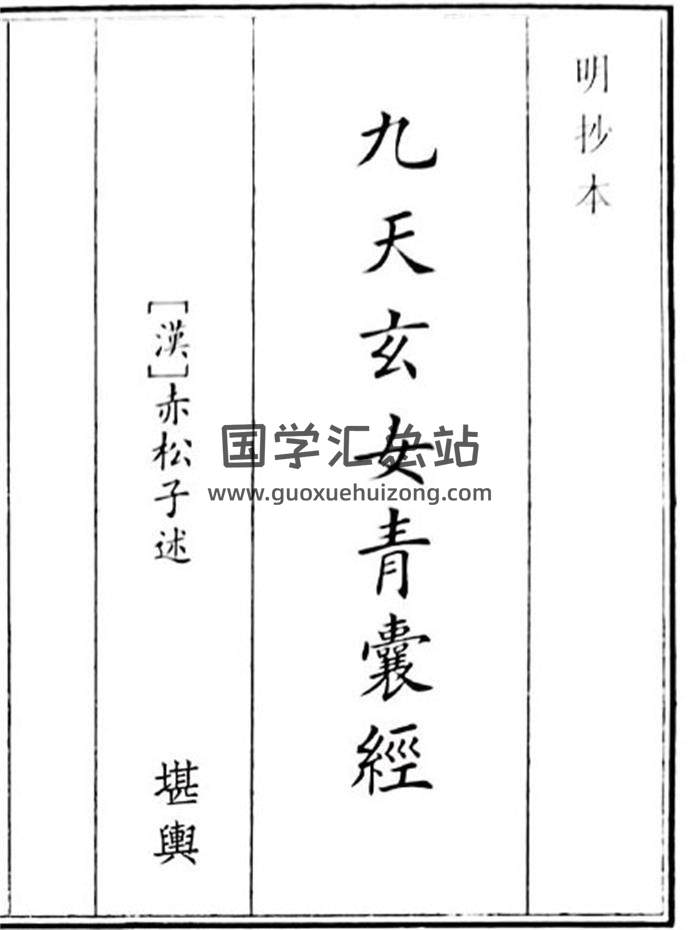 明抄本
九天玄女青囊經
[漢]赤松子述
堪輿
国学汇总站
www.guoxuehuizong.com